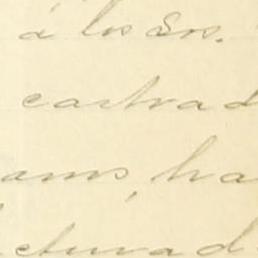 á los Srs.
castrad
ams, ha
ctura d